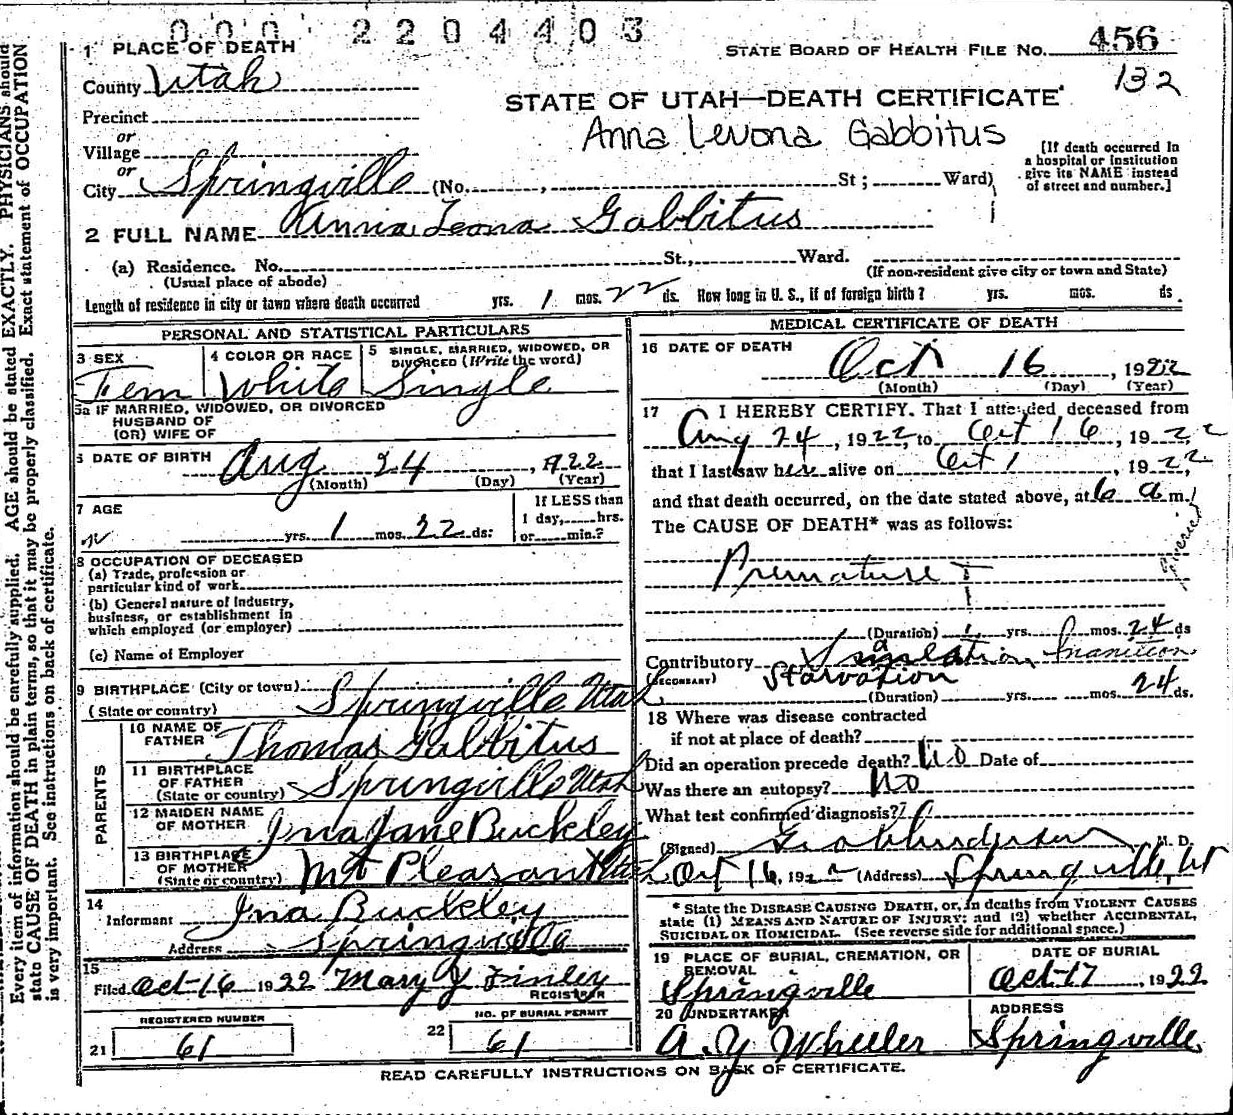 000 2204403
STATE BOARD OF HEALTH FILE NO. 456
132
STATE OF UTAH—DEATH CERTIFICATE
Anna Levona Gabbitus
[If death occurred in
a hospital or institution
give its NAME instead
of street and number.]
1 PLACE OF DEATH
County Utah
Precinct
or
Village
or
City Springville (No. , St; Ward)
2 FULL NAME Annia Leona Gabbitus
(a) Residence. No. St., Ward.
(Usual place of abode) (If non-resident give city or town and State)
Length of residence in city or town where death occurred yrs. 1 mos. 22 ds. How long in U. S., if of foreign birth? yrs. mos. ds.
PERSONAL AND STATISTICAL PARTICULARS
3 SEX
Fem
4 COLOR OR RACE
White
5 SINGLE, MARRIED, WIDOWED, OR
DIVORCED (Write the word)
Single
5a IF MARRIED, WIDOWED, OR DIVORCED
HUSBAND OF
(OR) WIFE OF
6 DATE OF BIRTH Aug 24, 1922
(Month) (Day) (Year)
7 AGE
yrs. 1 mos. 22 ds.
If LESS than
1 day, hrs.
or min.?
8 OCCUPATION OF DECEASED
(a) Trade, profession or
particular kind of work
(b) General nature of Industry,
business, or establishment in
which employed (or employer)
(c) Name of Employer
9 BIRTHPLACE (City or town)
(State or country) Springville Utah
PARENTS
10 NAME OF
FATHER Thomas Gabbitus
11 BIRTHPLACE
OF FATHER
(State or country) Springville Utah
12 MAIDEN NAME
OF MOTHER Ina Jane Buckley
13 BIRTHPLACE
OF MOTHER
(State or country) Mt Pleasant Utah
14
Informant Ina Buckley
Address Springville
15
Filed Oct-16 1922 Mary Y Finley
REGISTRAR
REGISTERED NUMBER
21 61
NO. OF BURIAL PERMIT
22 61
MEDICAL CERTIFICATE OF DEATH
16 DATE OF DEATH
Oct 16, 1922
(Month) (Day) (Year)
17 I HEREBY CERTIFY. That I attended deceased from
Aug 24, 1922, to Oct 16, 1922
that I last saw her alive on Oct 1, 1922,
and that death occurred, on the date stated above, at 6 a m.
The CAUSE OF DEATH* was as follows:
Premature
(Duration) 1 yrs. mos. 24 ds
Contributory Inanition
(SECONDARY) Starvation
(Duration) yrs. mos. 24 ds.
18 Where was disease contracted
if not at place of death?
Did an operation precede death? No Date of
Was there an autopsy? No
What test confirmed diagnosis?
(Signed) M. D.
Oct 16, 1922 (Address) Springville, Ut
* State the DISEASE CAUSING DEATH, or, in deaths from VIOLENT CAUSES
state (1) MEANS AND NATURE OF INJURY; and (2) whether ACCIDENTAL,
SUICIDAL OR HOMICIDAL. (See reverse side for additional space.)
19 PLACE OF BURIAL, CREMATION, OR
REMOVAL
Springville
DATE OF BURIAL
Oct-17, 1922
20 UNDERTAKER
A. Y Wheeler
ADDRESS
Springville
READ CAREFULLY INSTRUCTIONS ON BACK OF CERTIFICATE.
Every item of information should be carefully supplied. AGE should be stated EXACTLY. PHYSICIANS should
state CAUSE OF DEATH in plain terms, so that it may be properly classified. Exact statement of OCCUPATION
is very important. See instructions on back of certificate.